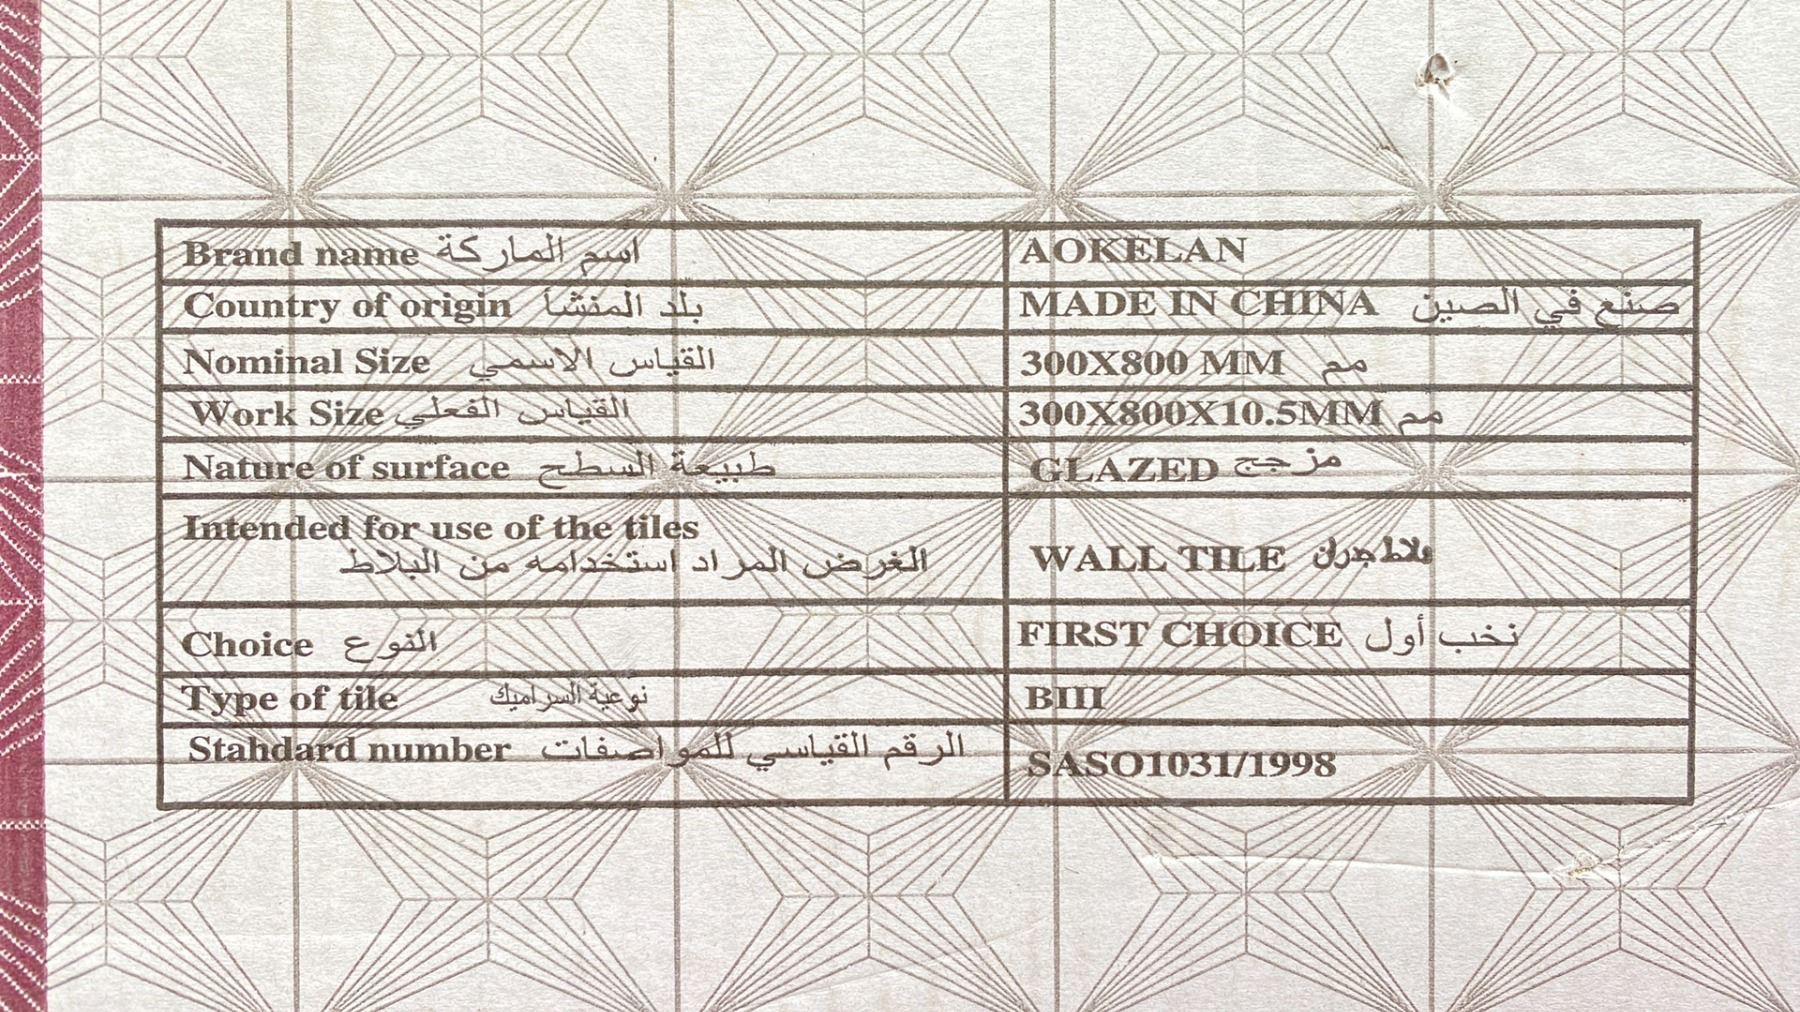 Brand name اسم الماركة AOKELAN
Country of origin بلد المنشأ MADE IN CHINA صنع في الصين
Nominal Size القياس الاسمي 300X800 MM مم
Work Size القياس الفعلي 300X800X10.5MM مم
Nature of surface طبيعة السطح GLAZED مزجج
Intended for use of the tiles
الغرض المراد استخدامه من البلاط
WALL TILE بلاط جدران
Choice النوع FIRST CHOICE نخب أول
Type of tile نوعية السراميك BIII
Stahdard number الرقم القياسي للمواصفات SASO1031/1998